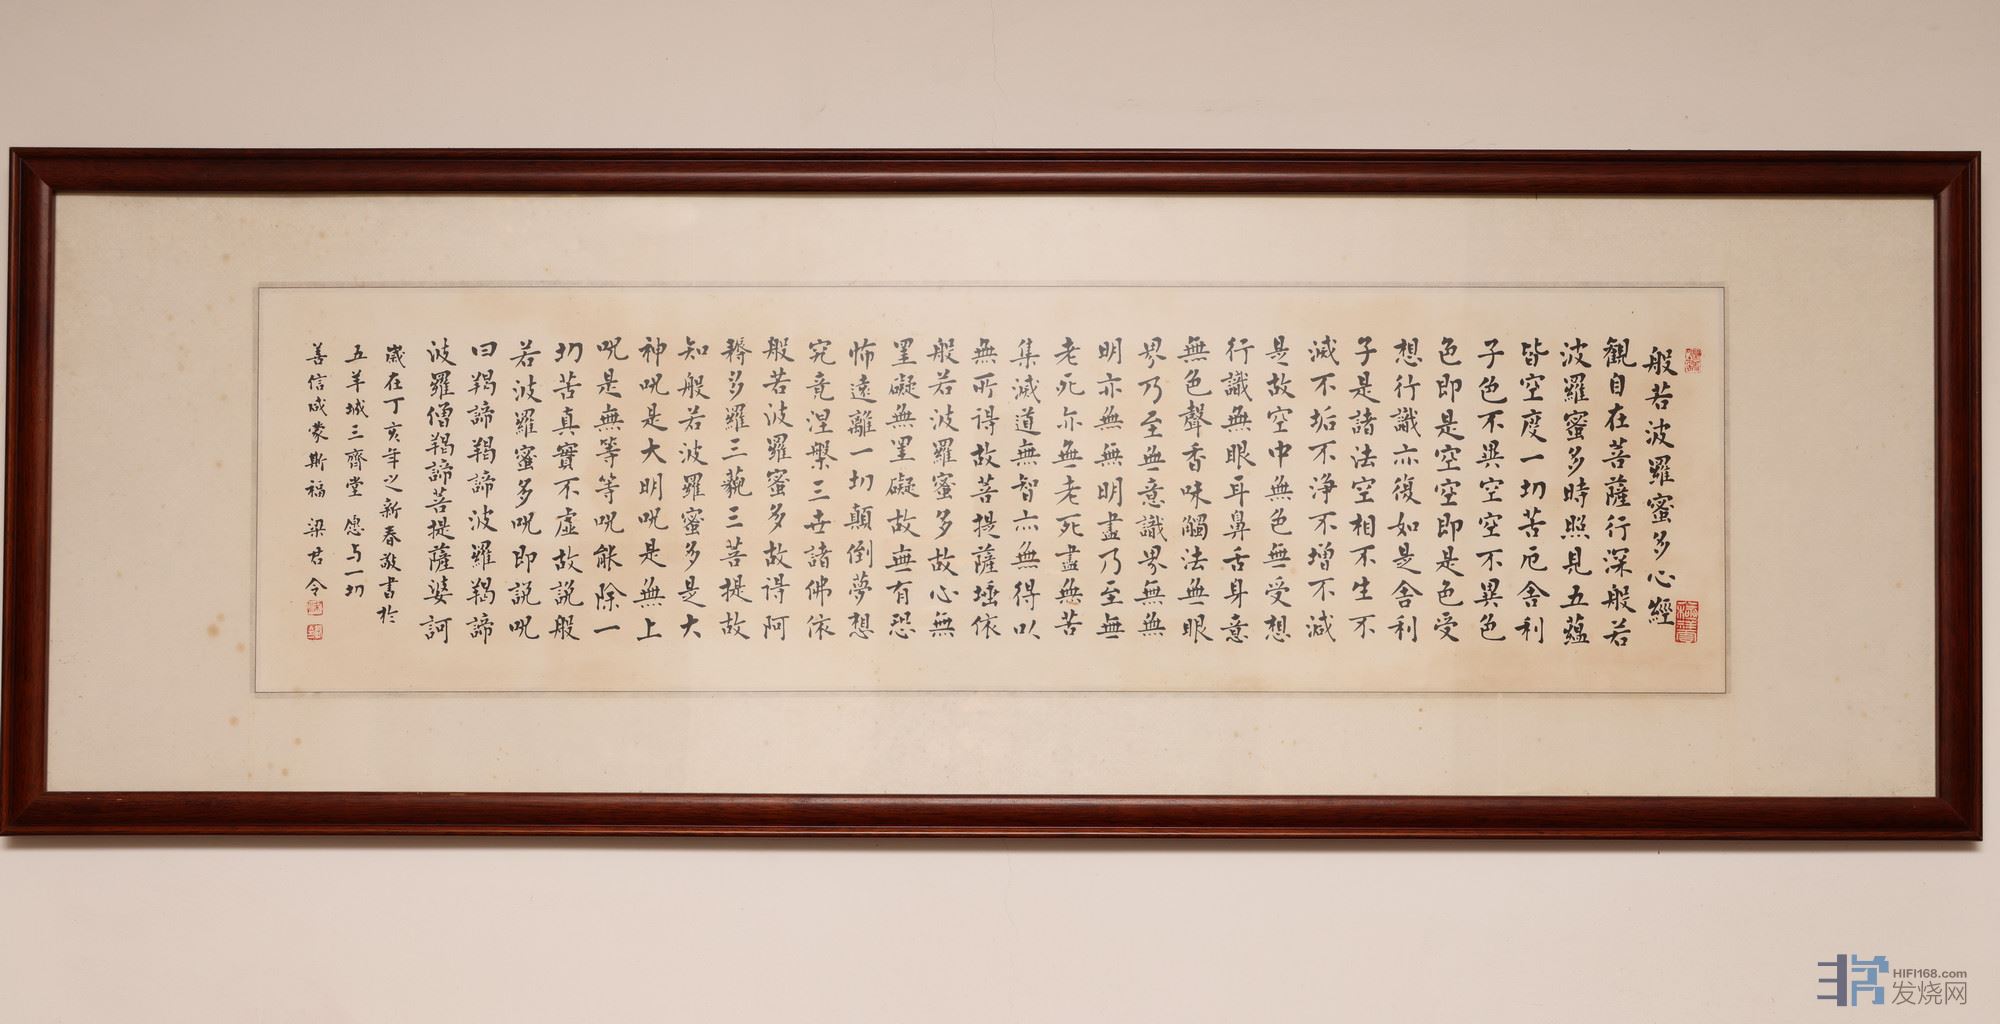 般若波羅蜜多心經
觀自在菩薩行深般若
波羅蜜多時照見五蘊
皆空度一切苦厄舍利
子色不異空空不異色
色即是空空即是色受
想行識亦復如是舍利
子是諸法空相不生不
滅不垢不淨不增不減
是故空中無色無受想
行識無眼耳鼻舌身意
無色聲香味觸法無眼
界乃至無意識界無無
明亦無無明盡乃至無
老死亦無老死盡無苦
集滅道無智亦無得以
無所得故菩提薩埵依
般若波羅蜜多故心無
罣礙無罣礙故無有恐
怖遠離一切顛倒夢想
究竟涅槃三世諸佛依
般若波羅蜜多故得阿
耨多羅三藐三菩提故
知般若波羅蜜多是大
神呪是大明呪是無上
呪是無等等呪能除一
切苦真實不虛故說般
若波羅蜜多呪即說呪
曰羯諦羯諦波羅羯諦
波羅僧羯諦菩提薩婆訶
歲在丁亥年之新春敬書於
五羊城三齊堂 您与一切
善信咸蒙斯福 梁君令
HIFI168.com
发烧网